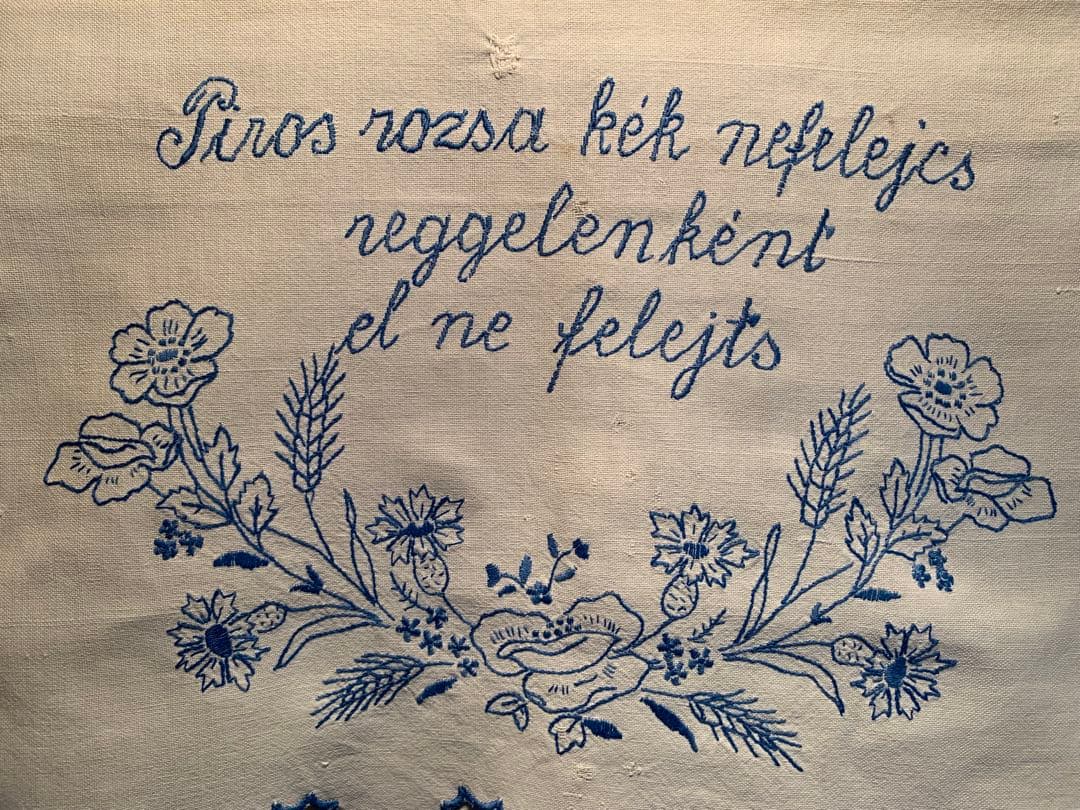 Piros rozsa kék nefelejcs
reggelenként
el ne felejts